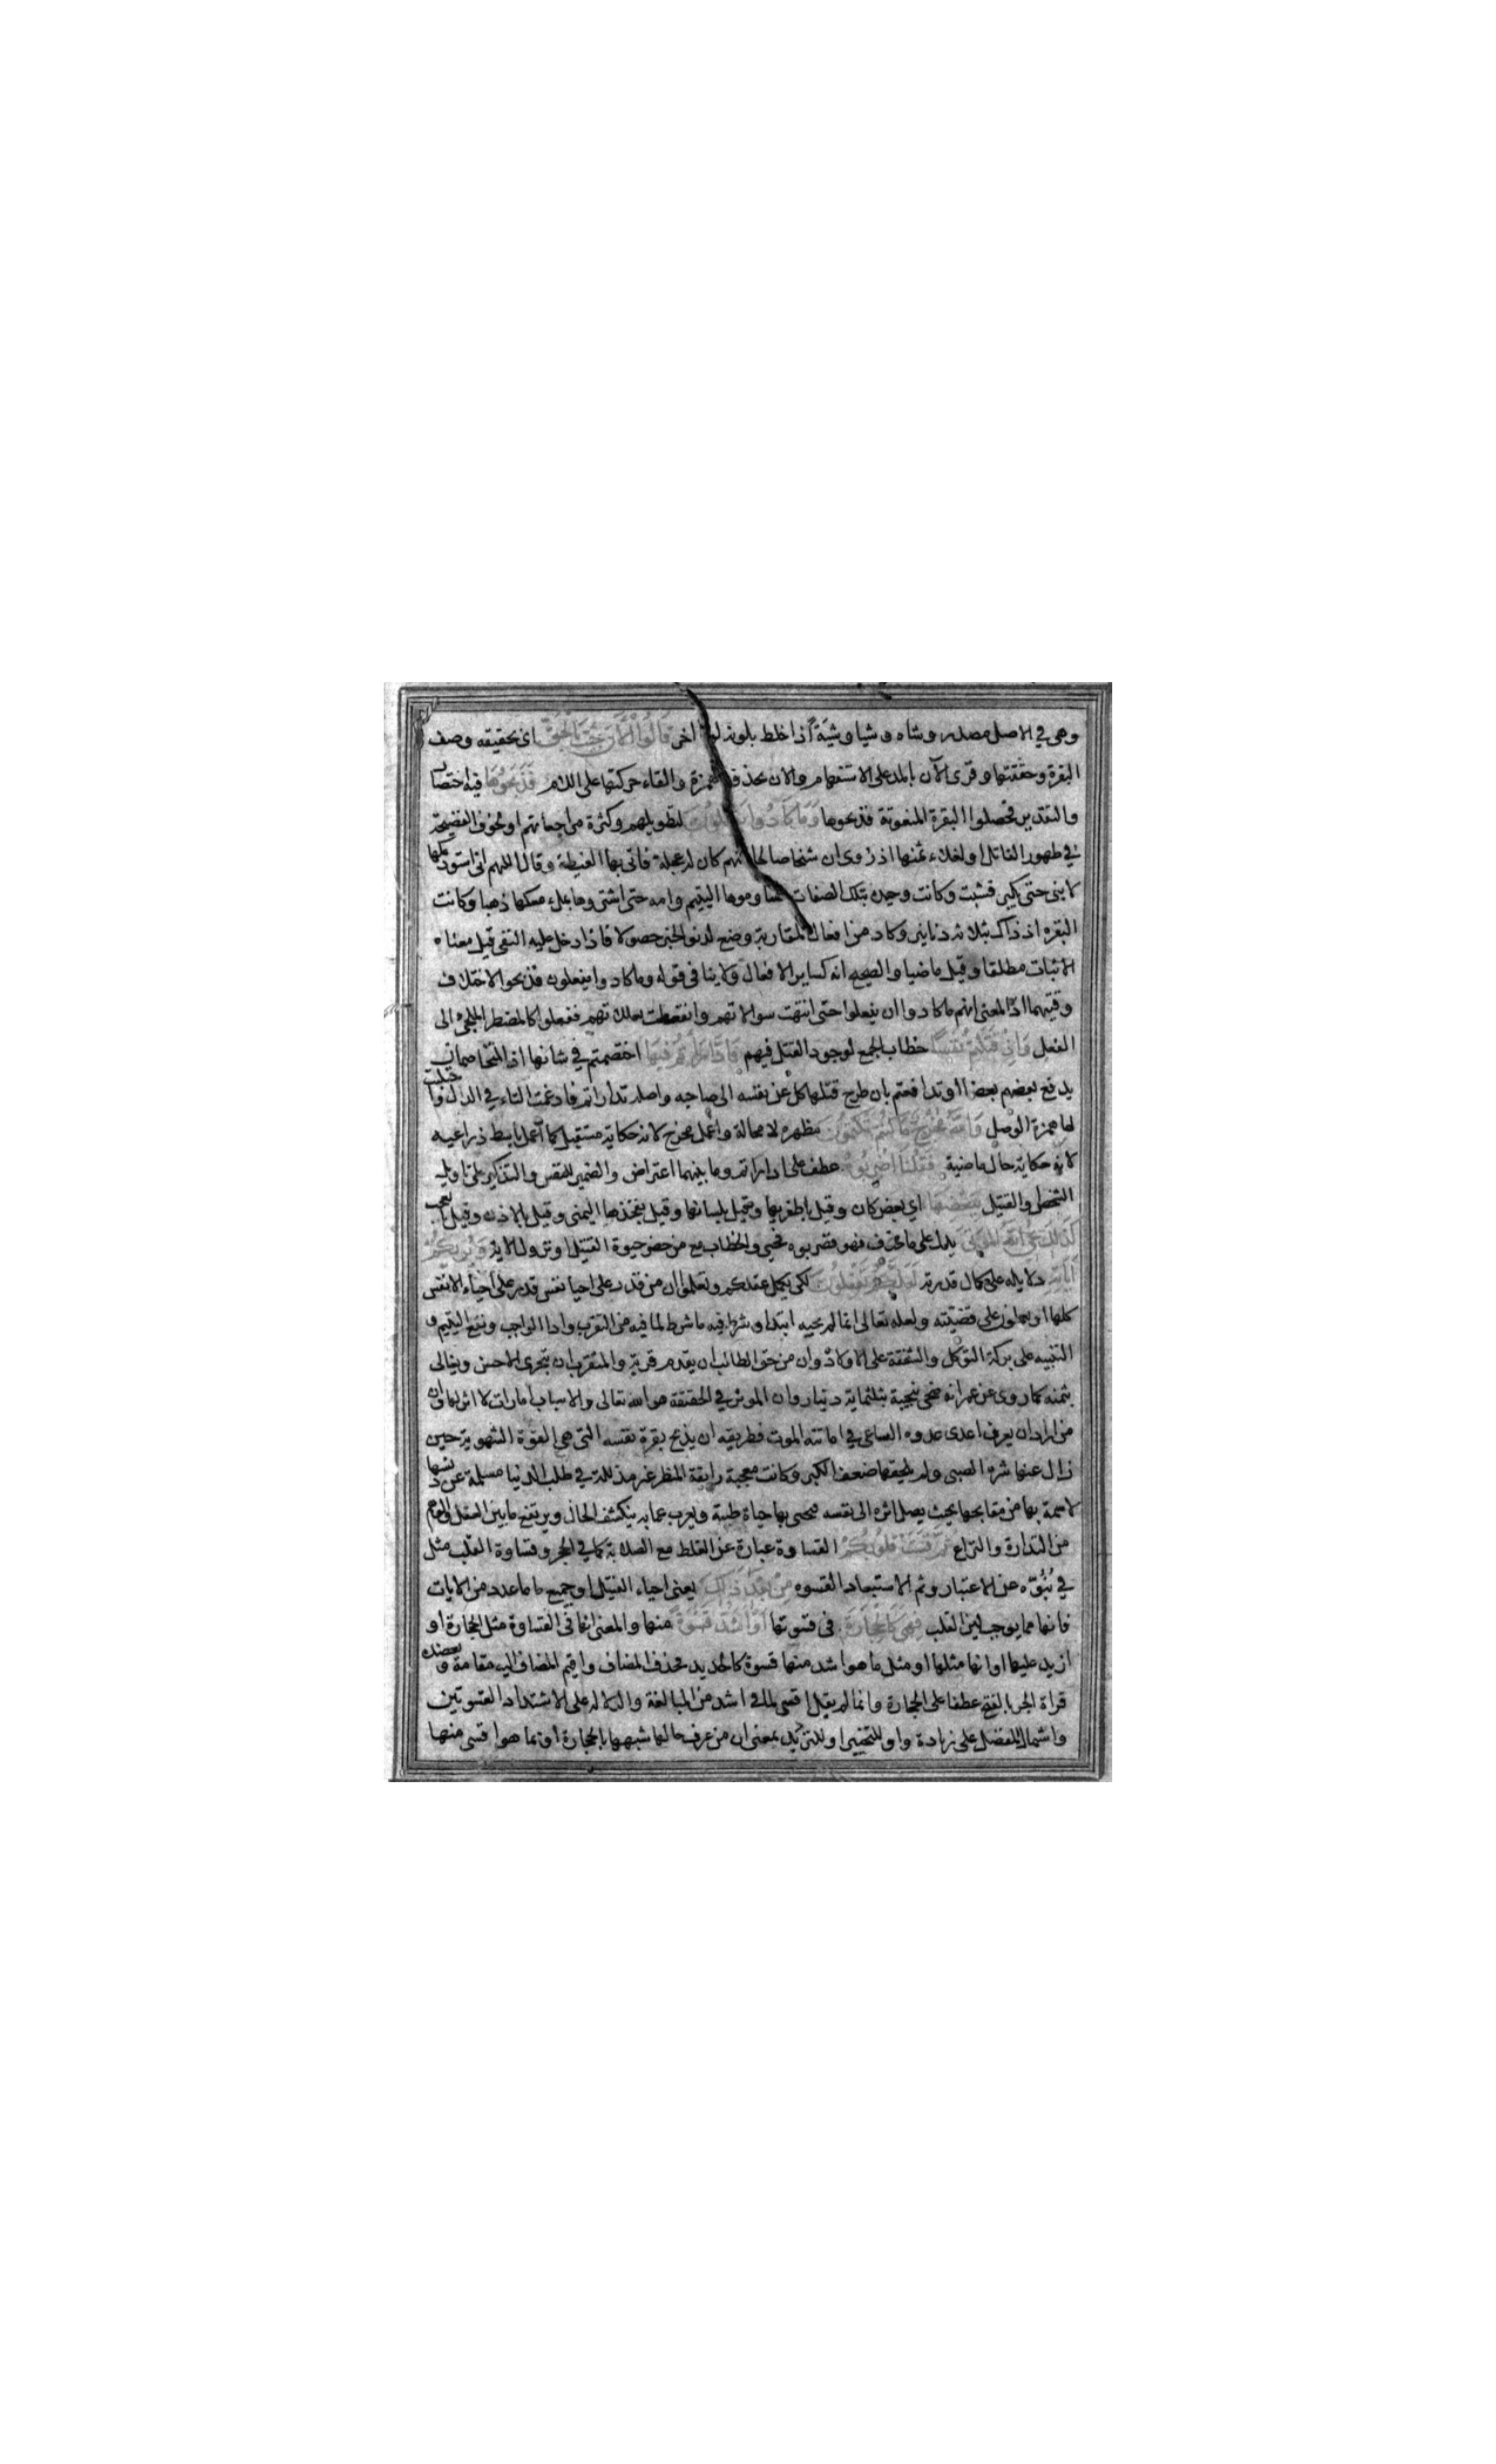 وهي في الاصل مصدر وشاه وشيا وشية اذا خلط بلونه لونا اخر قالوا الآن جئت بالحق اي بحقيقه وصف
البقرة وحققتها وقرئ الآن بالمد على الاستفهام والان بحذف الهمزة والقاء حركتها على اللام فذبحوها فيه اختصار
والتقدير فحصلوا البقرة المنعوتة فذبحوها وما كادوا يفعلون لتطويلهم وكثرة مراجعاتهم او لخوف الفضيحة
في ظهور القاتل او لغلاء ثمنها اذ روى ان شيخا صالحا منهم كان له عجلة فاتى بها الغيطة وقال اللهم انى استودعكها
لابني حتى يكبر فشبت وكانت وحيدة بتلك الصفات فساوموها اليتيم وامه حتى اشتروها بملء مسكها ذهبا وكانت
البقره اذ ذاك بثلاثه دنانير وكاد من افعال المقاربة وضع لدنو الخبر حصولا فاذا دخل عليه النفى قيل معناه
الاثبات مطلقا وقيل ماضيا والصحيح انه كساير الافعال ولا ينافى قوله وما كادوا يفعلون فذبحوا لاختلاف
وقتيهما اذ المعنى انهم ما كادوا ان يفعلوا حتى انتهت سوالاتهم وانقطعت تعللاتهم ففعلوا كالمضطر الملجئ الى
الفعل واذ قتلتم نفسا خطاب الجمع لوجود القتل فيهم فادارأتم فيها اختصمتم في شانها اذ المتخاصمان
يدفع بعضهم بعضا او تدافعتم بان طرح قتلها كل عن نفسه الى صاحبه واصله تدارأتم فادغمت التاء في الدال واجتلبت
لها همزة الوصل والله مخرج ما كنتم تكتمون مظهره لا محالة واعمل مخرج لانه حكاية مستقبل كما اعمل باسط ذراعيه
لانه حكاية حال ماضية فقلنا اضربوه عطف على ادارأتم وما بينهما اعتراض والضمير للنفس والتذكير على تاويل
الشخص او القتيل ببعضها اي بعض كان وقيل باصغريها وقيل بلسانها وقيل بفخذها اليمنى وقيل بالاذن وقيل بالعجب
كذلك يحيى الله الموتى يدل على ما حذف فهو فضربوه فحيي والخطاب مع من حضر حيوة القتيل او نزول الاية ويريكم
آياته دلايله على كمال قدرته لعلكم تعقلون لكى يكمل عقلكم وتعلموا ان من قدر على احيا نفس قدر على احياء الانفس
كلها او تعملون على قضيته ولعله تعالى انما لم يحييه ابتدا وشرط فيه ما شرط لما فيه من التقرب وادا الواجب ونفع اليتيم و
التنبيه على بركة التوكل والشفقة على الاولاد وان من حق الطالب ان يقدم قربة والمتقرب ان يتحرى الاحسن ويغالى
بثمنه كما روى عن عمر انه ضحى بنجيبة بثلثماية دينار وان الموثر في الحقيقة هو الله تعالى والاسباب امارات لا اثر لها وان
من اراد ان يعرف اعدى عدوه الساعى في اماتته الموت فطريقه ان يذبح بقرة نفسه التى هى القوة الشهوية حين
زال عنها شره الصبى ولم يلحقها ضعف الكبر وكانت معجبة رايقة المنظر غير مذللة في طلب الدنيا مسلمة عن دنسها
لا سمة بها من مقابحها بحيث يصل اثره الى نفسه فتحيى بها حياة طيبة ويعرب عما به ينكشف الحال ويرتفع ما بين العقل والوهم
من التدارؤ والنزاع ثم قست قلوبكم القساوة عبارة عن الغلظ مع الصلابة كما في الحجر وقساوة القلب مثل
في نبوه عن الاعتبار وثم الاستبعاد القسوه من بعد ذلك يعنى احياء القتيل او جميع ما عدد من الايات
فانها مما يوجب لين القلب فهي كالحجارة في قسوتها او اشد قسوة منها والمعنى انها في القساوة مثل الحجارة او
ازيد عليها او انها مثلها او مثل ما هو اشد منها قسوة كالحديد فحذف المضاف واقيم المضاف اليه مقامه ويعضده
قراة الجر بالفتح عطفا على الحجارة وانما لم يقل اقسى لما في اشد من المبالغة والدلاله على الاشتداد القسوتين
واشتمال المفضل على زيادة واو للتخيير او للترديد بمعنى ان من عرف حالها شبهها بالحجارة او بما هو اقسى منها